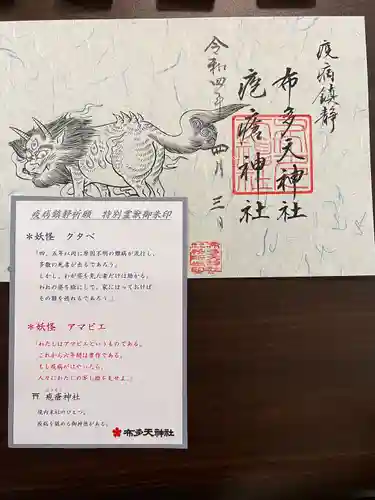 疫病鎮静
布多天神社
疱瘡神社
令和四年四月三日
疫病鎮静祈願　特別霊獣御朱印
＊妖怪　クタベ
「四、五年以内に原因不明の難病が流行し、
多数の死者が出るであろう。
しかし、わが姿を見た者だけは助かる。
わが
＊妖怪　アマビエ
「わたしはアマビエというものである。
これから六年間は豊作である。
もし疫病がはやったら、
人々にわたしの写し絵を見せよ。」
疱瘡神社
ほうそう
境内末社のひとつ。
疫病を鎮める御神徳がある。
布多天神社